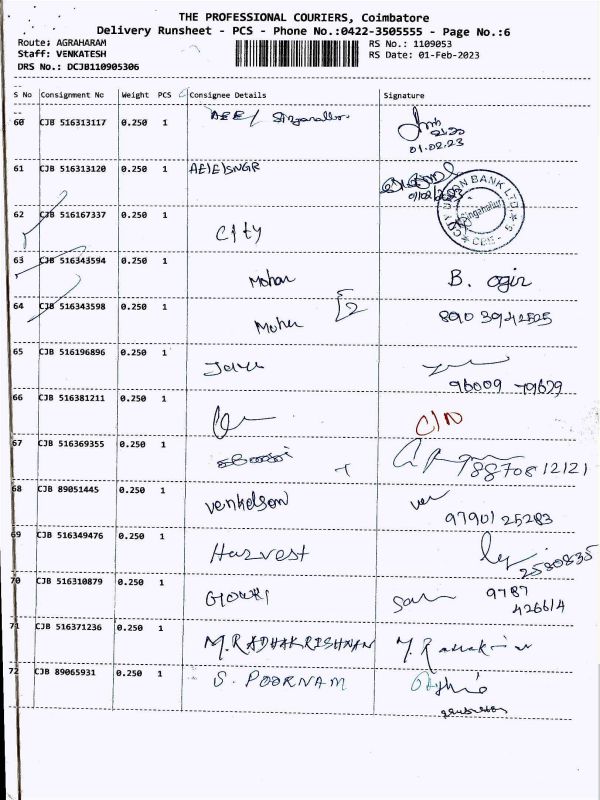 THE PROFESSIONAL COURIERS, Coimbatore
Delivery Runsheet - PCS - Phone No.:0422-3505555 - Page No.:6
Route: AGRAHARAM RS No.: 1109053
Staff: VENKATESH RS Date: 01-Feb-2023
DRS No.: DCJB110905306
S No Consignment No Weight PCS Consignee Details Signature
60 CJB 516313117 0.250 1 AEE/ Singanallur
01.02.23
61 CJB 516313120 0.250 1 AE/E/SNGR
CITY UNION BANK LTD. Singanallur CBE
62 CJB 516167337 0.250 1 City
63 CJB 516343594 0.250 1 Mohan B.
64 CJB 516343598 0.250 1 Mohan 2 890 3942525
65 CJB 516196896 0.250 1
96009 79629
66 CJB 516381211 0.250 1 C/N
67 CJB 516369355 0.250 1 88708 12121
68 CJB 89051445 0.250 1 Venkelson ven
97901 25283
69 CJB 516349476 0.250 1 Harvest
2580835
70 CJB 516310879 0.250 1 9787
426614
71 CJB 516371236 0.250 1 M.RADHAKRISHNAN
72 CJB 89065931 0.250 1 S. POORNAM